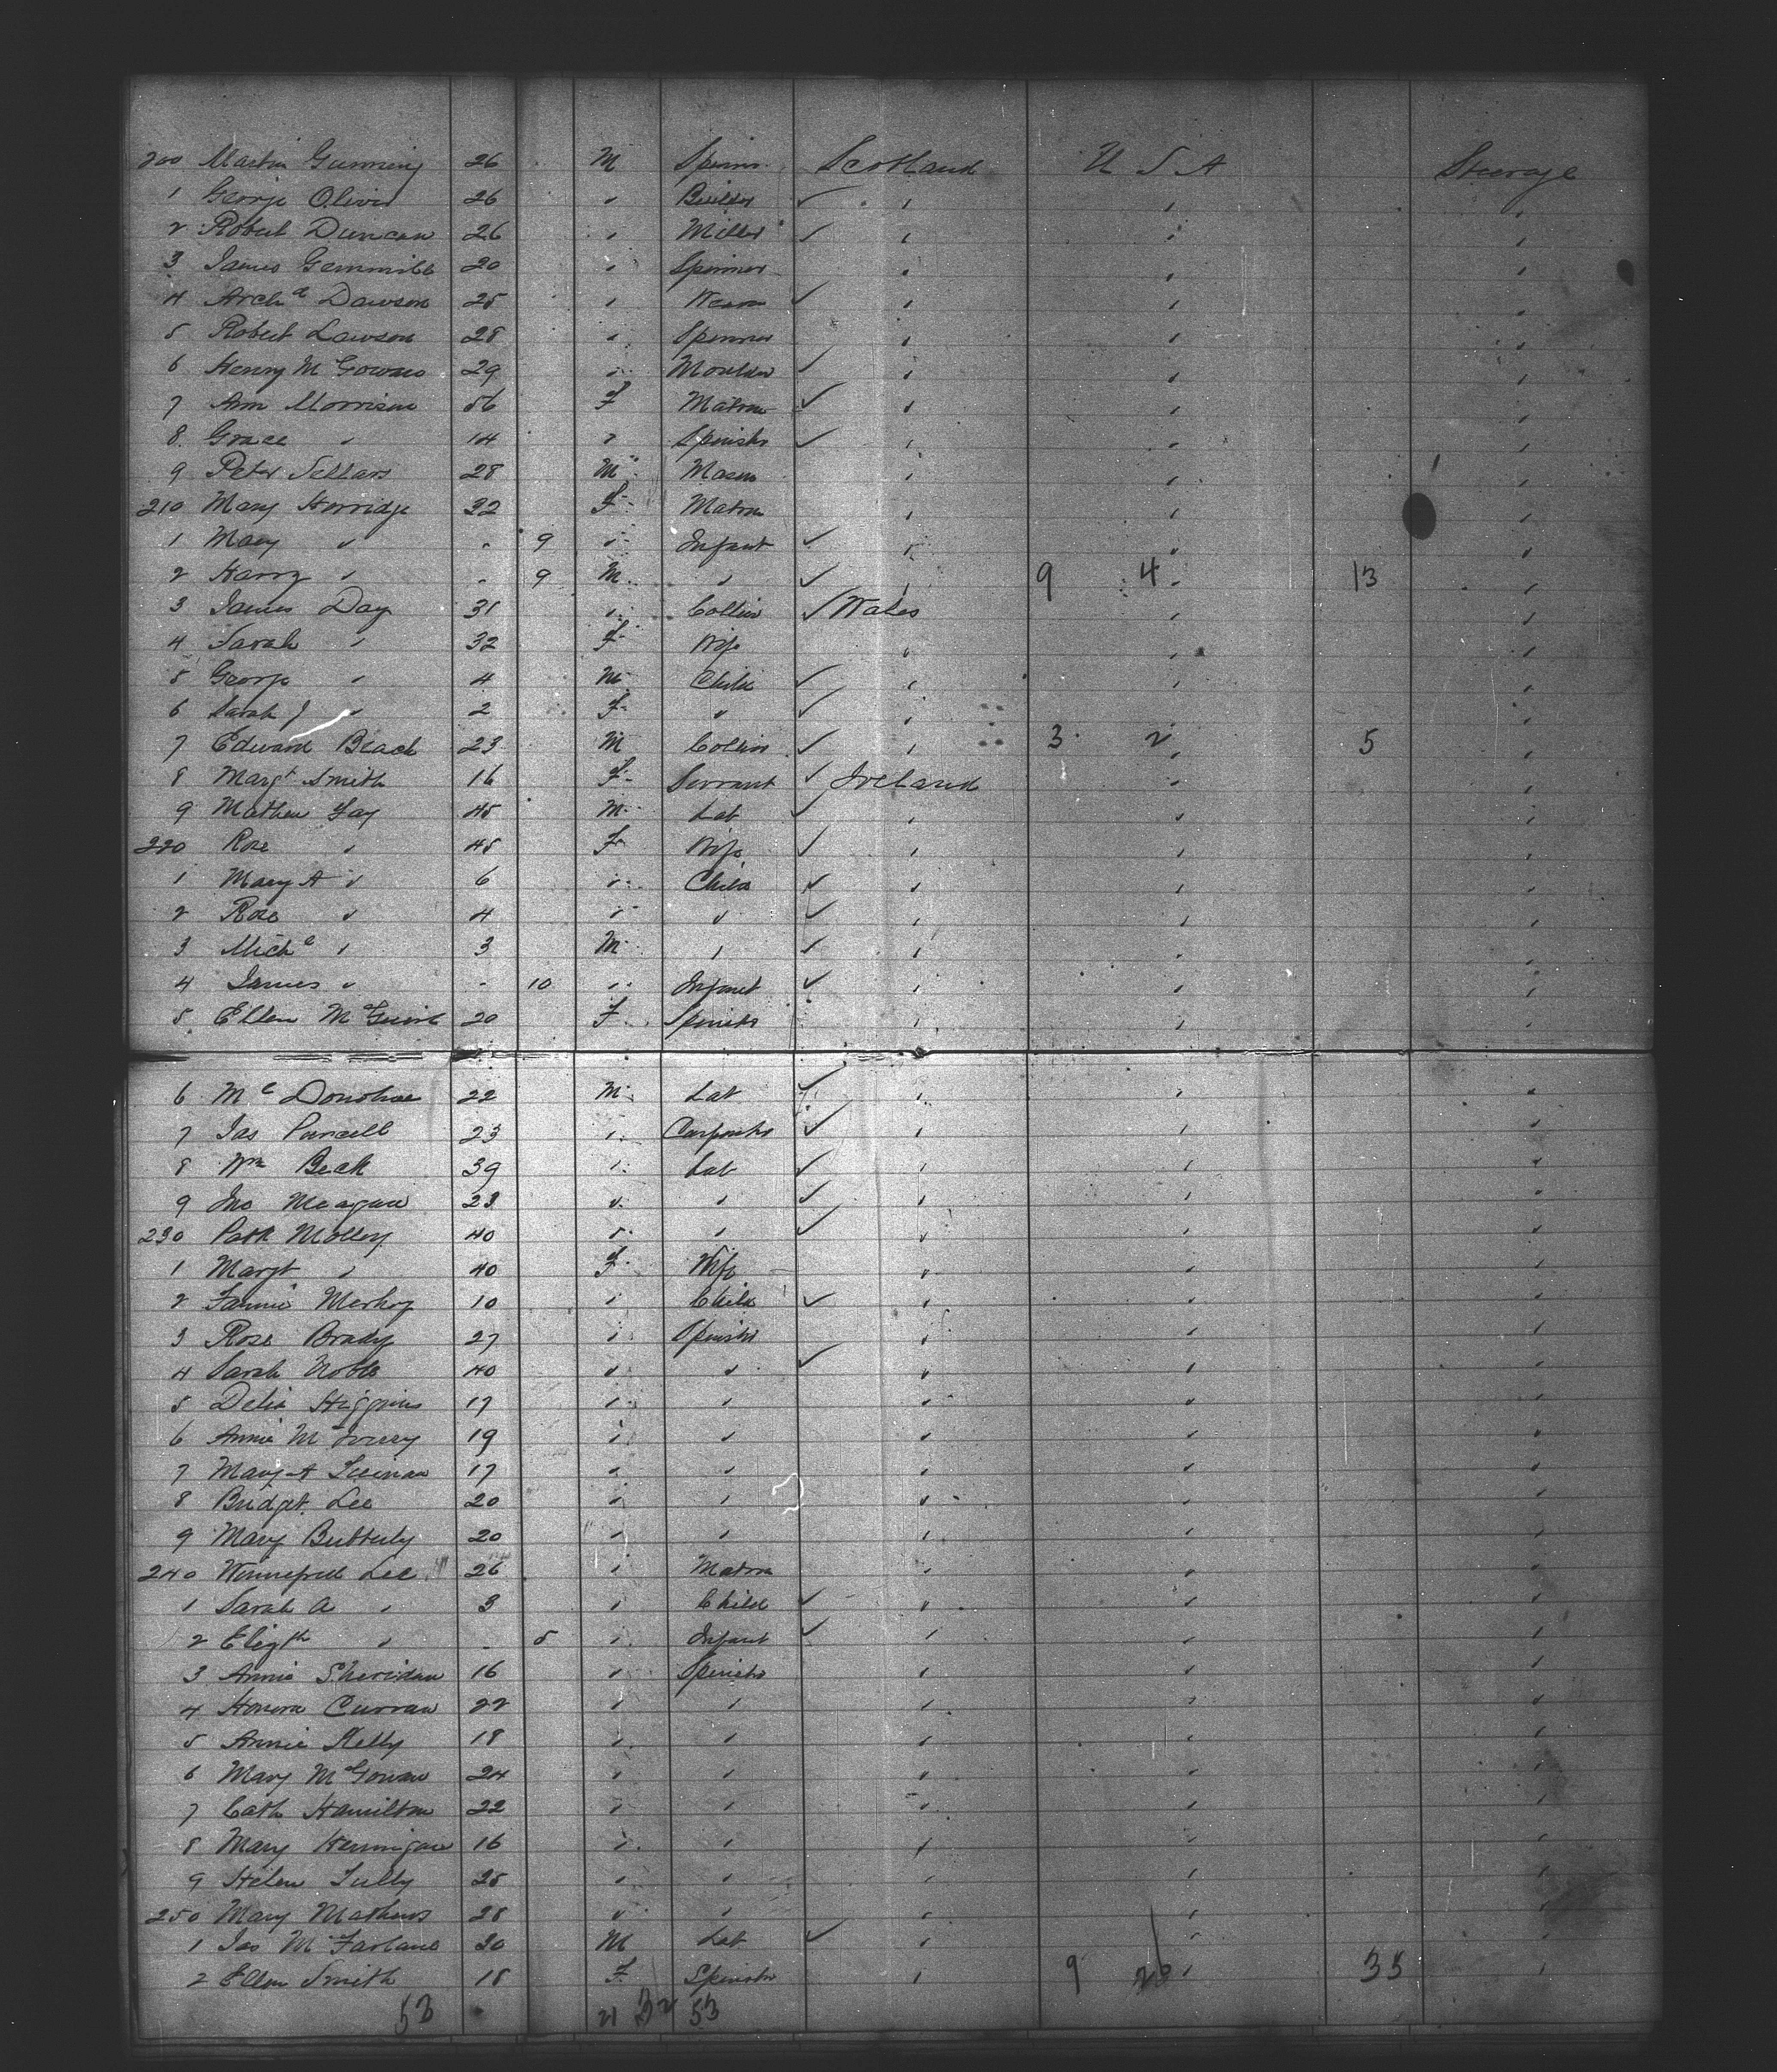 200 Martin Gunning 26 M Spinnr Scotland U S A Steerage
1 George Oliver 26 " Builder ✓ " " "
2 Robert Duncan 26 " Miller ✓ " " "
3 James Gemmill 20 " Spinner " " "
4 Archd Dawson 25 " ✓ " " "
5 Robert Lawson 28 " Spinner " " "
6 Henry McGowan 29 " Moulder ✓ " " "
7 Ann Morrison 56 F Matron ✓ " " "
8 Grace " 14 " Spinster ✓ " " "
9 Peter Sellars 28 M Mason " " "
210 Mary Horridge 32 F Matron " " "
1 Mary " - 9 " Infant ✓ " " "
2 Harry " - 9 M " ✓ " 9 4 " 13 "
3 James Day 31 " Collier ✓ Wales " "
4 Sarah " 32 F Wife " " "
5 George " 4 M Child ✓ " " "
6 Sarah J " 2 F " ✓ " "
7 Edward Beach 23 M Collier ✓ " 3 2 " 5 "
8 Margt Smith 16 F Servant ✓ Ireland " "
9 Mathew Fay 45 M Lab ✓ " " "
220 Rose " 45 F Wife ✓ " " "
1 Mary A " 6 " Child ✓ " " "
2 Rose " 4 " " ✓ " " "
3 Michl " 3 M " ✓ " " "
4 James " - 10 " Infant ✓ " " "
5 Ellen McGuire 20 F Spinster " " "
6 Mc Donohoe 22 M Lab ✓ " " "
7 Jas Purcell 23 " Carpenter ✓ " " "
8 Wm Beak 39 " Lab ✓ " " "
9 Jno Meagan 23 " " ✓ " " "
230 Patk Molloy 40 " " ✓ " " "
1 Margt " 40 F Wife " " "
2 Fannie 10 " Child ✓ " " "
3 Rose Brady 27 " Spinster " " "
4 Sarah Noble 40 " " ✓ " " "
5 Delia Higgins 17 " " " " "
6 Annie 19 " " " " "
7 Mary A 17 " " " " "
8 Bridget Lee 20 " " " " "
9 Mary Butterly 20 " " " " "
240 Winnefred Lee 26 " Matron " " "
1 Sarah A " 3 " Child ✓ " " "
2 Elizth " - 8 " Infant ✓ " " "
3 Annie Sheridan 16 " Spinster " " "
4 Honora Curran 22 " " " " "
5 Annie Kelly 18 " " " " "
6 Mary McGowan 24 " " " " "
7 Cath Hamilton 22 " " " " "
8 Mary Hennigan 16 " " " " "
9 Helen Tully 25 " " " " "
250 Mary Mathews 28 " " " " "
1 Jas McFarlane 20 M Lab ✓ " " "
2 Ellen Smith 18 F Spinster " 9 26 " 35 "
53 21 32 53